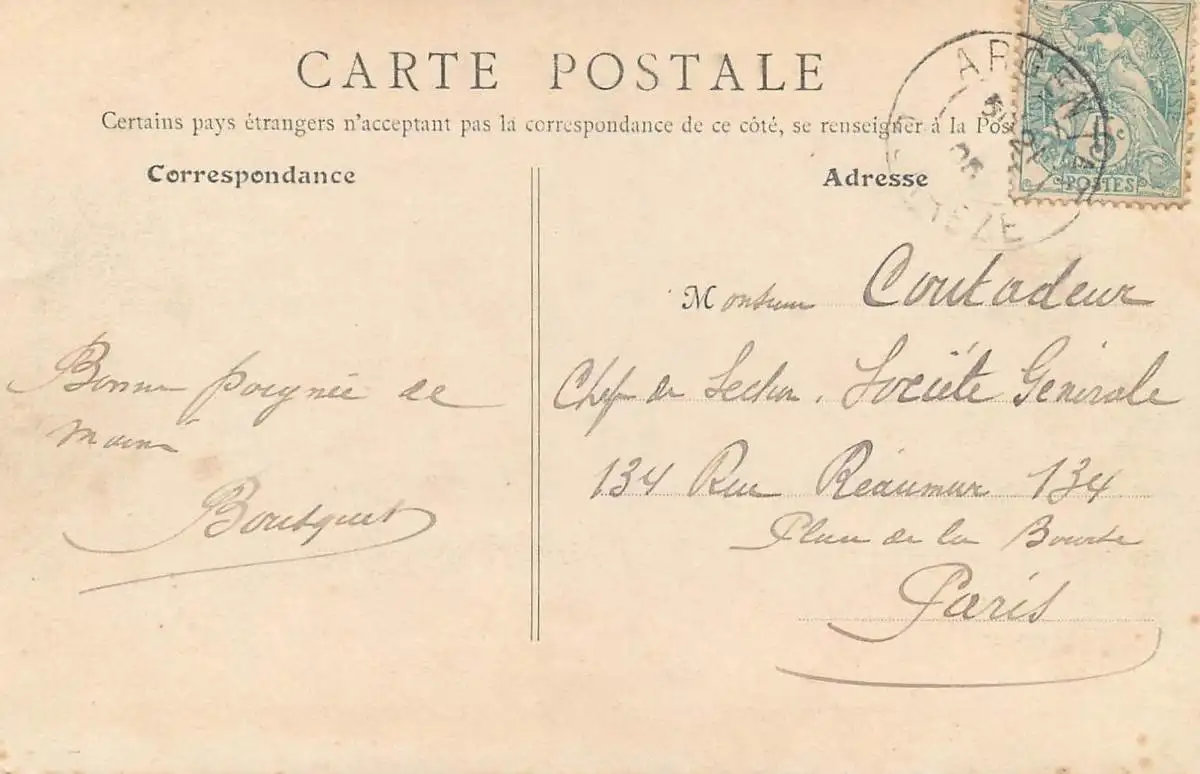 CARTE POSTALE
Certains pays étrangers n'acceptant pas la correspondance de ce côté, se renseigner à la Pos
Correspondance
Adresse
ARGEN
05
5c
POSTES
Monsieur Coutadeur
Chef de Section. Société Générale
134 Rue Réaumur 134
Place de la Bourse
Paris
Bonne poignée de
main
Bousquet